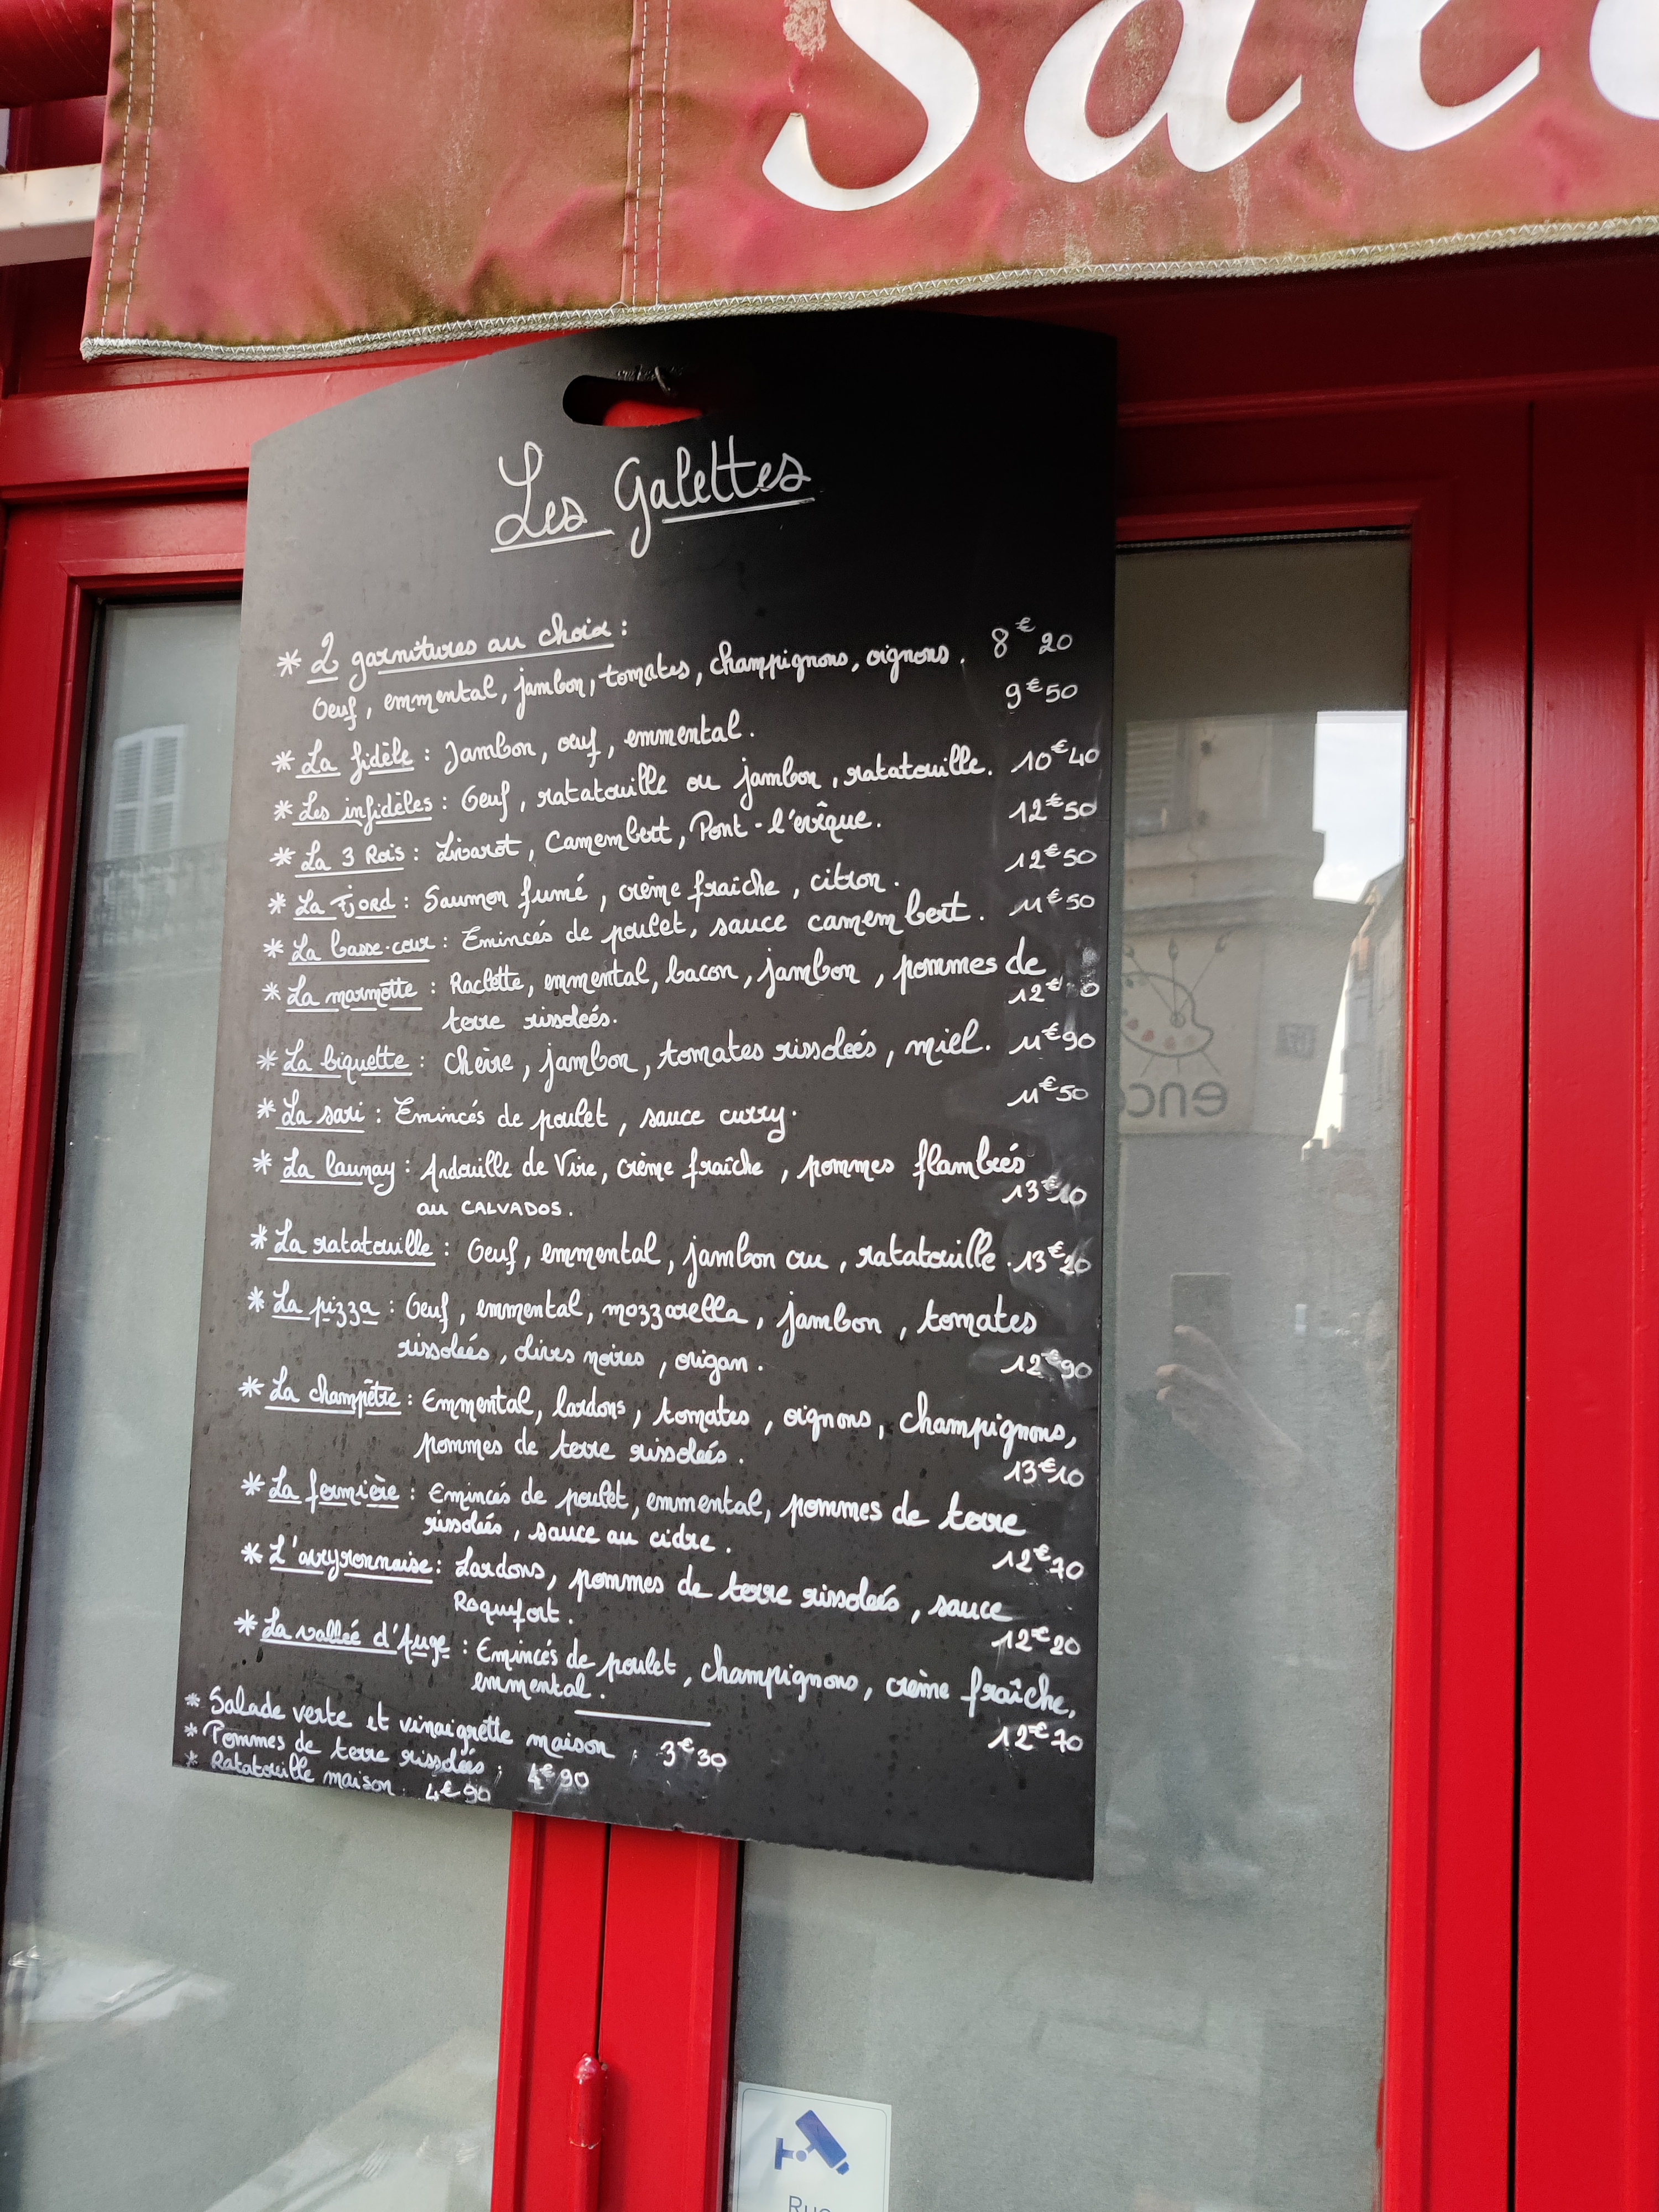 Sal
Les Galettes
* 2 garnitures au choix :
Oeuf, emmental, jambon, tomates, champignons, oignons. 8€20
9€50
* La fidèle : Jambon, oeuf, emmental.
* Les infidèles : Oeuf, ratatouille ou jambon, ratatouille. 10€40
12€50
* La 3 Rois : Livarot, Camembert, Pont-l'évêque.
12€50
* La Fjord : Saumon fumé, crème fraiche, citron.
* La basse-cour : Emincés de poulet, sauce camembert. 11€50
* La marmotte : Raclette, emmental, bacon, jambon, pommes de
terre rissoleés. 12€
* La biquette : Chèvre, jambon, tomates rissoleés, miel. 11€90
11€50
* La sari : Emincés de poulet, sauce curry.
* La launay : Andouille de Vire, crème fraîche, pommes flambeés
au CALVADOS. 13€10
* La ratatouille : Oeuf, emmental, jambon ou, ratatouille. 13€20
* La pizza : Oeuf, emmental, mozzarella, jambon, tomates
rissoleés, olives noires, origan. 12€90
* La champêtre : Emmental, lardons, tomates, oignons, champignons,
pommes de terre rissoleés. 13€10
* La fermière : Emincés de poulet, emmental, pommes de terre
rissoleés, sauce au cidre. 12€70
* L'aveyronnaise : Lardons, pommes de terre rissoleés, sauce
Roquefort. 12€20
* La valleé d'Auge : Emincés de poulet, champignons, crème fraîche,
emmental. 12€70
* Salade verte et vinaigrette maison : 3€30
* Pommes de terre rissoleés : 4€90
* Ratatouille maison : 4€90
enc
Rue